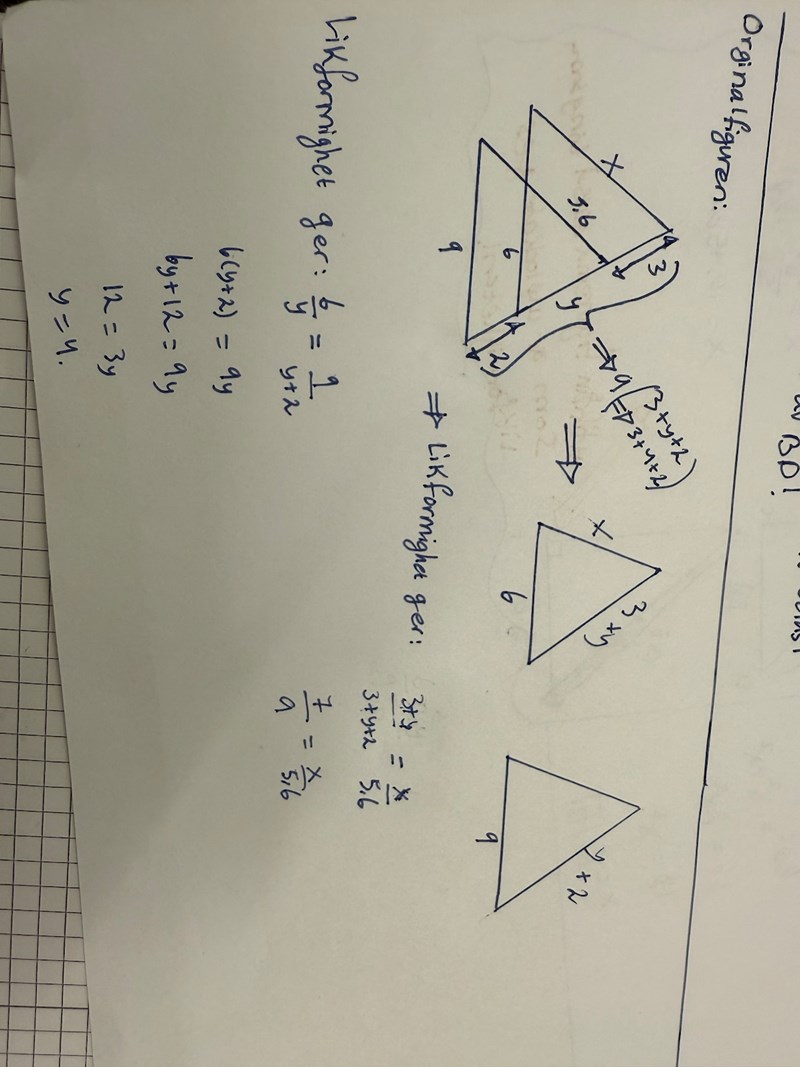 BD!
Orginalfiguren:
x
3
5,6
y
6
2
9
⇒ 9 (3+y+2
⇒ 3+4+2)
⇒
x
3+y
6
y+2
9
⇒ Likformighet ger:
3+y/3+y+2 = x/5,6
7/9 = x/5,6
Likformighet ger: 6/y = 9/y+2
6(y+2) = 9y
6y+12 = 9y
12 = 3y
y = 4.